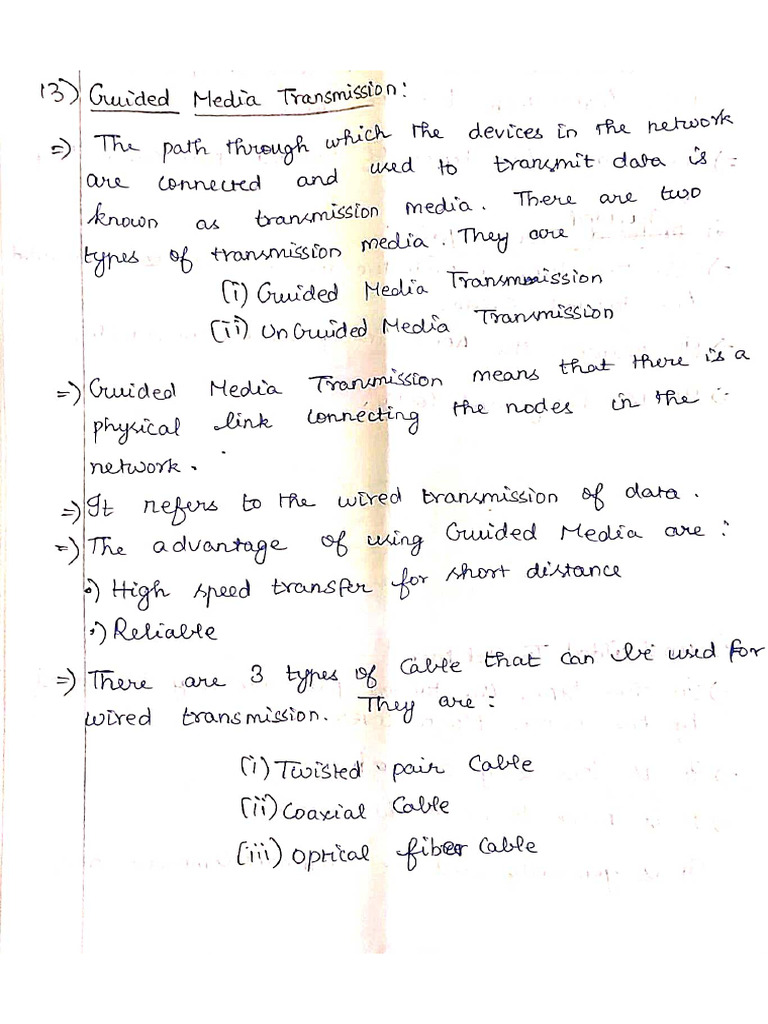 13) Guided Media Transmission:
=) The path through which the devices in the network
are connected and used to transmit data is
known as transmission media. There are two
types of transmission media. They are
(i) Guided Media Transmission
(ii) UnGuided Media Transmission
=) Guided Media Transmission means that there is a
physical link connecting the nodes in the
network.
=) It refers to the wired transmission of data.
=) The advantage of using Guided Media are:
•) High speed transfer for short distance
•) Reliable
=) There are 3 types of Cable that can be used for
wired transmission. They are:
(i) Twisted pair Cable
(ii) Coaxial Cable
(iii) Optical fiber Cable